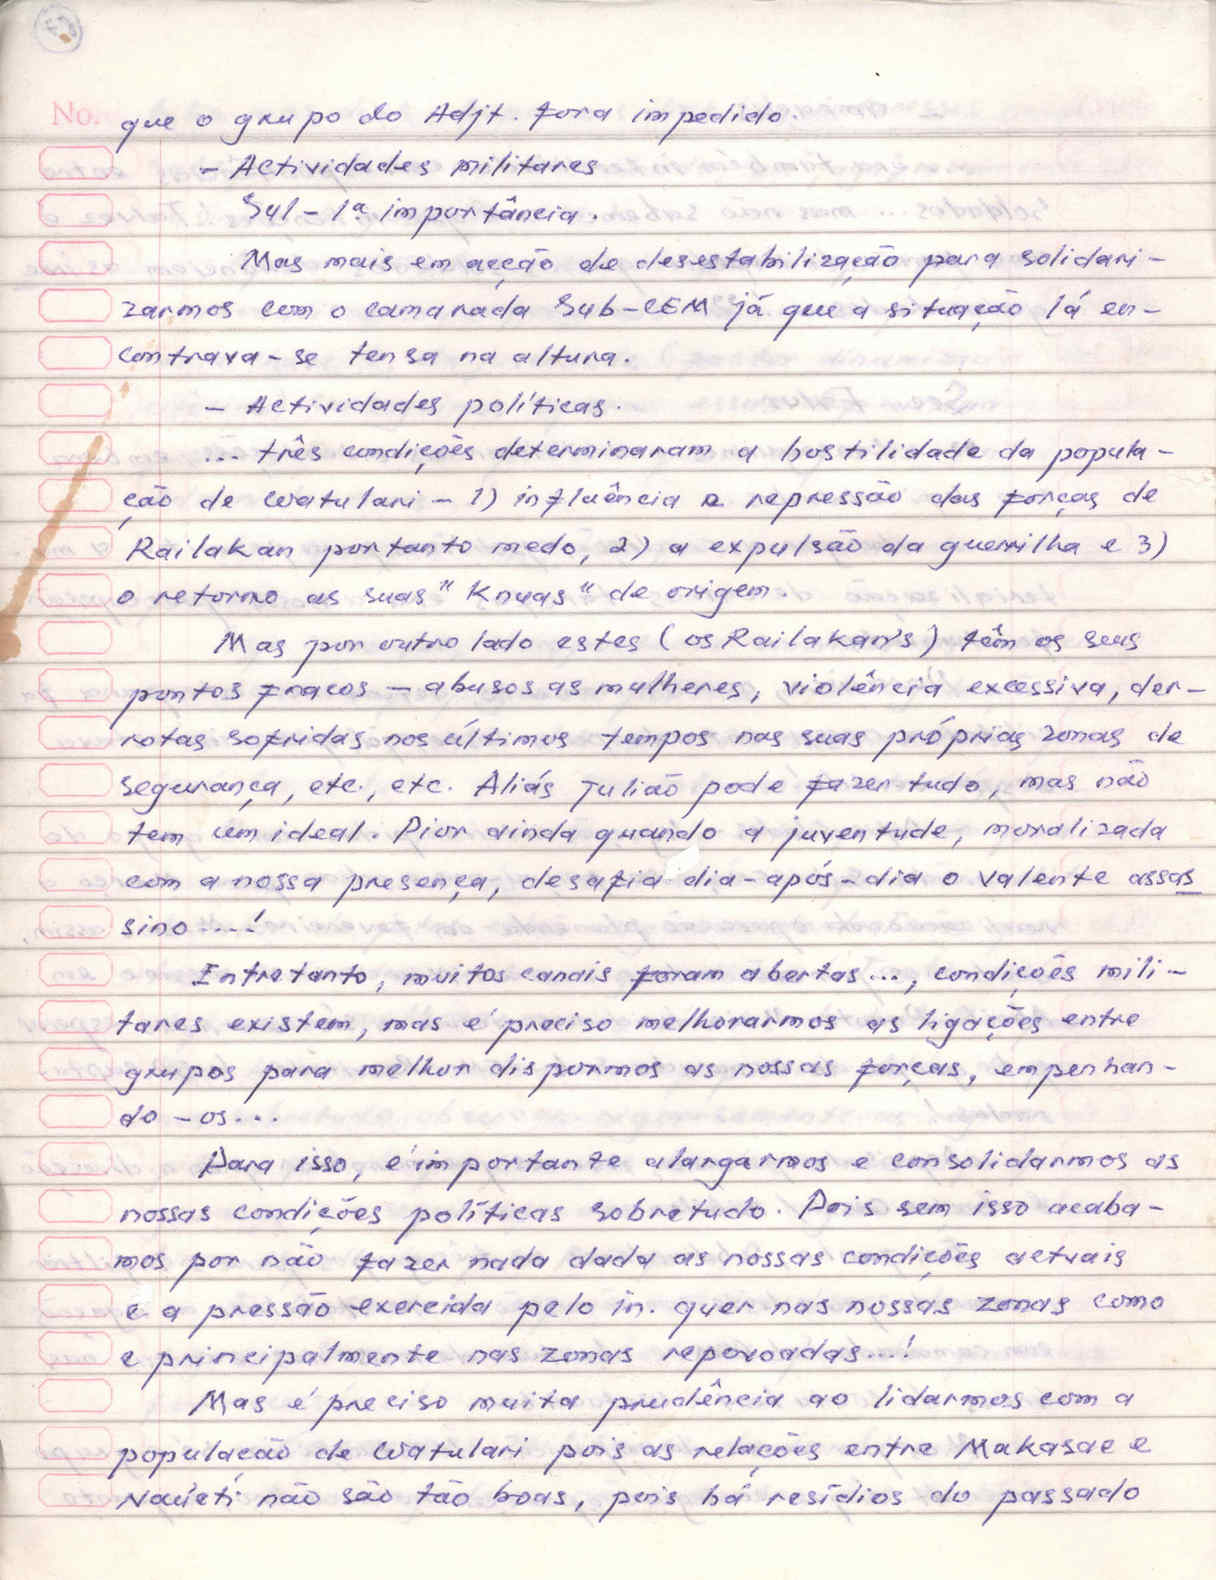 No.
que o grupo do Adjt. fora impedido.
- Actividades militares
Sul - 1ª importância.
Mas mais em acção de desestabilização para solidari-
zarmos com o camarada Sub-CEM já que a situação lá en-
contrava-se tensa na altura.
- Actividades políticas.
... três condições determinaram a hostilidade da popula-
ção de Watulari - 1) influência e repressão das forças de
Railakan portanto medo, 2) a expulsão da guerrilha e 3)
o retorno as suas "Knuas" de origem.
Mas por outro lado estes (os Railakan's) têm os seus
pontos fracos - abusos as mulheres, violência excessiva, der-
rotas sofridas nos últimos tempos nas suas próprias zonas de
segurança, etc., etc. Aliás Julião pode fazer tudo, mas não
tem um ideal. Pior ainda quando a juventude, moralizada
com a nossa presença, desafia dia-após-dia o valente assas
sino...!
Entretanto, muitos canais foram abertas..., condições mili-
tares existem, mas é preciso melhorarmos as ligações entre
grupos para melhor dispormos as nossas forças, empenhan-
do-os...
Para isso, é importante alargarmos e consolidarmos as
nossas condições políticas sobretudo. Pois sem isso acaba-
mos por não fazer nada dada as nossas condições actuais
e a pressão exercida pelo in. quer nas nossas zonas como
e principalmente nas zonas repovoadas...!
Mas é preciso muita prudência ao lidarmos com a
população de Watulari pois as relações entre Makasae e
Naúeti não são tão boas, pois há resídios do passado